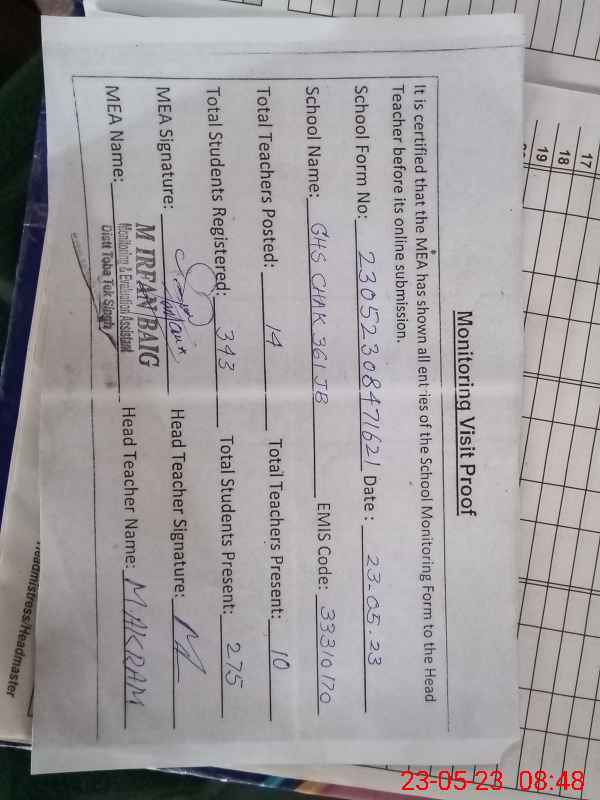 Monitoring Visit Proof
It is certified that the MEA has shown all entries of the School Monitoring Form to the Head
Teacher before its online submission.
School Form No: 23052308471621 Date : 23.05.23
School Name: GHS CHAK 361 JB EMIS Code: 33310170
Total Teachers Posted: 14 Total Teachers Present: 10
Total Students Registered: 343 Total Students Present: 275
MEA Signature: Head Teacher Signature:
MEA Name: M IRFAN BAIG Head Teacher Name: M. AKRAM
Monitoring & Evaluation Assistant
Distt Toba Tek Singh
17
18
19
Headmistress/Headmaster
23-05-23 08:48